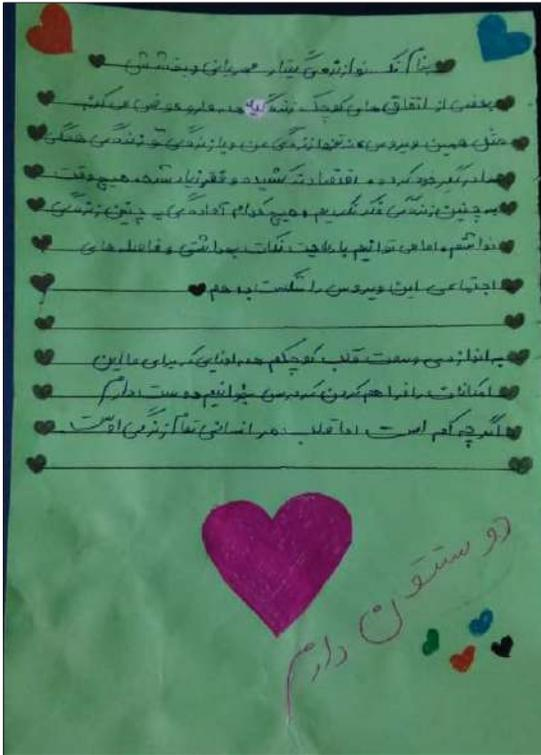 بنام تک نوازنده‌ی گیتار مهربانی و بخشش
بعضی از اتفاق های کوچک زندگی همه ما رو عوض می کنن
مثل همین ویروس نه تنها زندگی من و یا زندگی تو زندگی همگی
ما درگیر خود کرده اقتصاد ته کشیده و فقر زیاد شده هیچ وقت
به چنین زندگی فکر نکردیم و هیچ کدام آمادگی چنین زندگی
نداشتیم، اما می توانیم با رعایت نکات بهداشتی و فاصله های
اجتماعی این ویروس را شکست بدهیم
به اندازه‌ی وسعت قلب کوچکم همه اونایی که برای ما این
امکانات را فراهم کردن که درس بخوانیم دوست دارم
اگر چه کم است اما قلب هر انسانی تمام زندگی اوست
دوستتون دارم